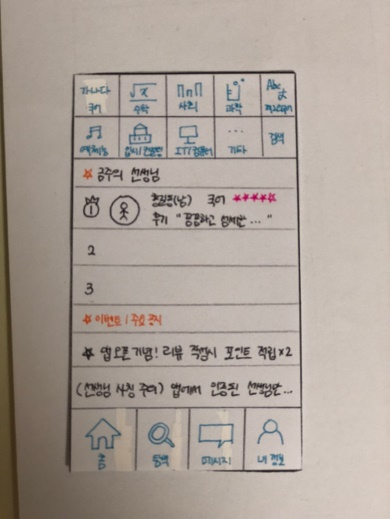 가나다 √x Abc
국어 수학 사회 과학 외국어
예체능 입시/컨설팅 IT/컴퓨터 기타 검색
☆ 금주의 선생님
1 홍길동(남) 국어 ★★★★★
후기 "꼼꼼하고 섬세한 ..."
2
3
☆ 이벤트 / 주요 공지
☆ 앱 오픈 기념! 리뷰 작성시 포인트 적립 x2
(선생님 사칭 주의) 앱에서 인증된 선생님만...
홈 검색 메시지 내 정보